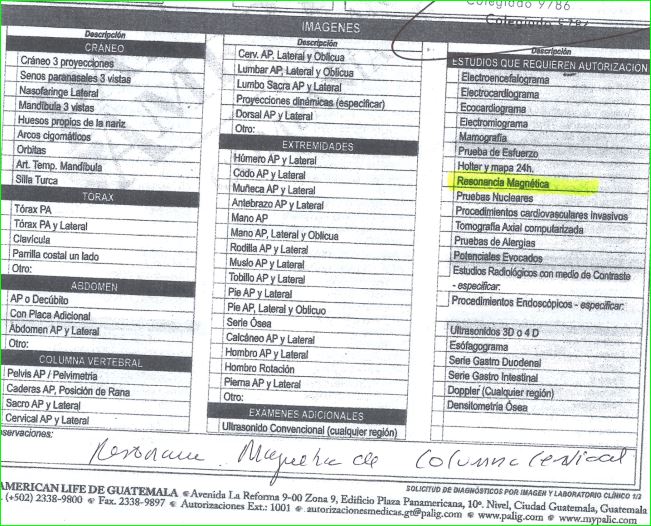 Colegiado 9786
Colegiado 9786
IMAGENES
Descripción
CRANEO
Cráneo 3 proyecciones
Senos paranasales 3 vistas
Nasofaringe Lateral
Mandíbula 3 vistas
Huesos propios de la nariz
Arcos cigomáticos
Orbitas
Art. Temp. Mandíbula
Silla Turca
TORAX
Tórax PA
Tórax PA y Lateral
Clavícula
Parrilla costal un lado
Otro:
ABDOMEN
AP o Decúbito
Con Placa Adicional
Abdomen AP y Lateral
Otro:
COLUMNA VERTEBRAL
Pelvis AP / Pelvimetría
Caderas AP, Posición de Rana
Sacro AP y Lateral
Cervical AP y Lateral
Descripción
Cerv. AP, Lateral y Oblicua
Lumbar AP, Lateral y Oblicua
Lumbo Sacra AP y Lateral
Proyecciones dinámicas (especificar)
Dorsal AP y Lateral
Otro:
EXTREMIDADES
Húmero AP y Lateral
Codo AP y Lateral
Muñeca AP y Lateral
Antebrazo AP y Lateral
Mano AP
Mano AP, Lateral y Oblicua
Rodilla AP y Lateral
Muslo AP y Lateral
Tobillo AP y Lateral
Pie AP y Lateral
Pie AP, Lateral y Oblicuo
Serie Ósea
Calcáneo AP y Lateral
Hombro AP y Lateral
Hombro Rotación
Pierna AP y Lateral
Otro:
EXÁMENES ADICIONALES
Ultrasonido Convencional (cualquier región)
Descripción
ESTUDIOS QUE REQUIEREN AUTORIZACION
Electroencefalograma
Electrocardiograma
Ecocardiograma
Electromiograma
Mamografía
Prueba de Esfuerzo
Holter y mapa 24h.
Resonancia Magnética
Pruebas Nucleares
Procedimientos cardiovasculares invasivos
Tomografía Axial computarizada
Pruebas de Alergias
Potenciales Evocados
Estudios Radiológicos con medio de Contraste
- especificar:
Procedimientos Endoscópicos - especificar:
Ultrasonidos 3D o 4 D
Esófagograma
Serie Gastro Duodenal
Serie Gastro Intestinal
Doppler (Cualquier región)
Densitometría Ósea
servaciones:
Resonancia Magnetica de Columna Cervical
SOLICITUD DE DIAGNÓSTICOS POR IMAGEN Y LABORATORIO CLÍNICO 1/2
AMERICAN LIFE DE GUATEMALA Avenida La Reforma 9-00 Zona 9, Edificio Plaza Panamericana, 10º. Nivel, Ciudad Guatemala, Guatemala
. (+502) 2338-9800 Fax. 2338-9897 Autorizaciones Ext.: 1001 autorizacionesmedicas.gt@palig.com www.palig.com www.mypalic.com